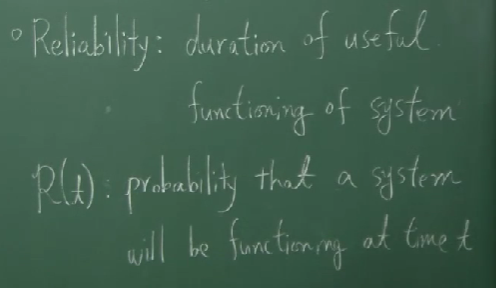 ° Reliability: duration of useful
functioning of system
R(t): probability that a system
will be functioning at time t